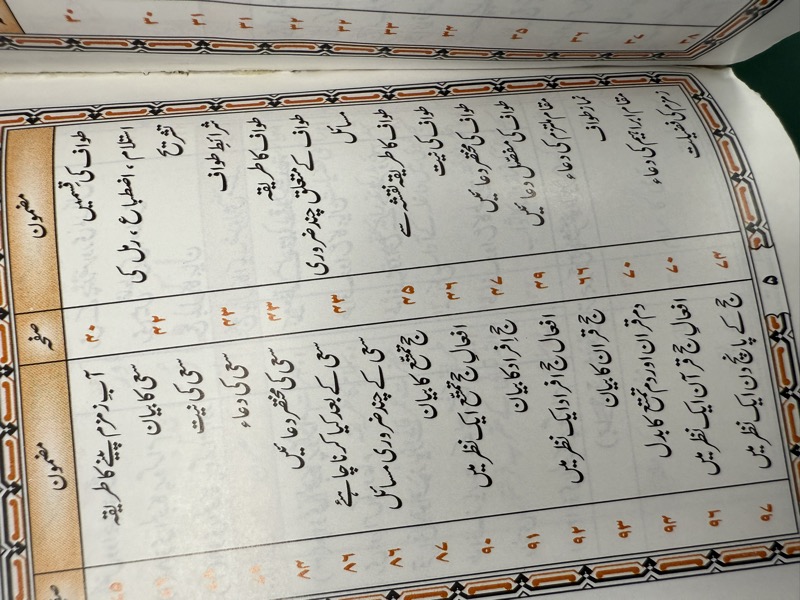 مضمون
صفحہ
طواف کی قسمیں ۴۰
استلام، اضطباع، رمل کی
تشریح ۴۲
شرائطِ طواف ۴۳
طواف کا طریقہ ۴۳
طواف کے متعلق چند ضروری
مسائل ۴۴
طواف کا طریقہ نقشہ سے ۴۵
طواف کی نیت ۴۶
طواف کی مختصر دعائیں ۴۷
طواف کی مفصل دعائیں ۴۹
مقام ملتزم کی دعاء ۶۶
نماز طواف ۷۰
مقام ابراہیم کی دعاء ۷۰
زمزم کی فضیلت
مضمون
آب زمزم پینے کا طریقہ
سعی کا بیان
سعی کی نیت
سعی کی دعاء
سعی کی مختصر دعائیں
سعی کے بعد کیا کرنا چاہئے ۸۶
سعی کے چند ضروری مسائل ۸۶
حج تمتع کا بیان ۸۷
افعالِ حج تمتع ایک نظر میں ۹۰
حج افراد کا بیان ۹۱
افعال حج افراد ایک نظر میں ۹۲
حج قران کا بیان ۹۳
دم قران اور دم تمتع کا بدل ۹۴
افعالِ حج قرآن ایک نظر میں ۹۶
حج کے پانچ دن ایک نظر میں ۹۷
۵